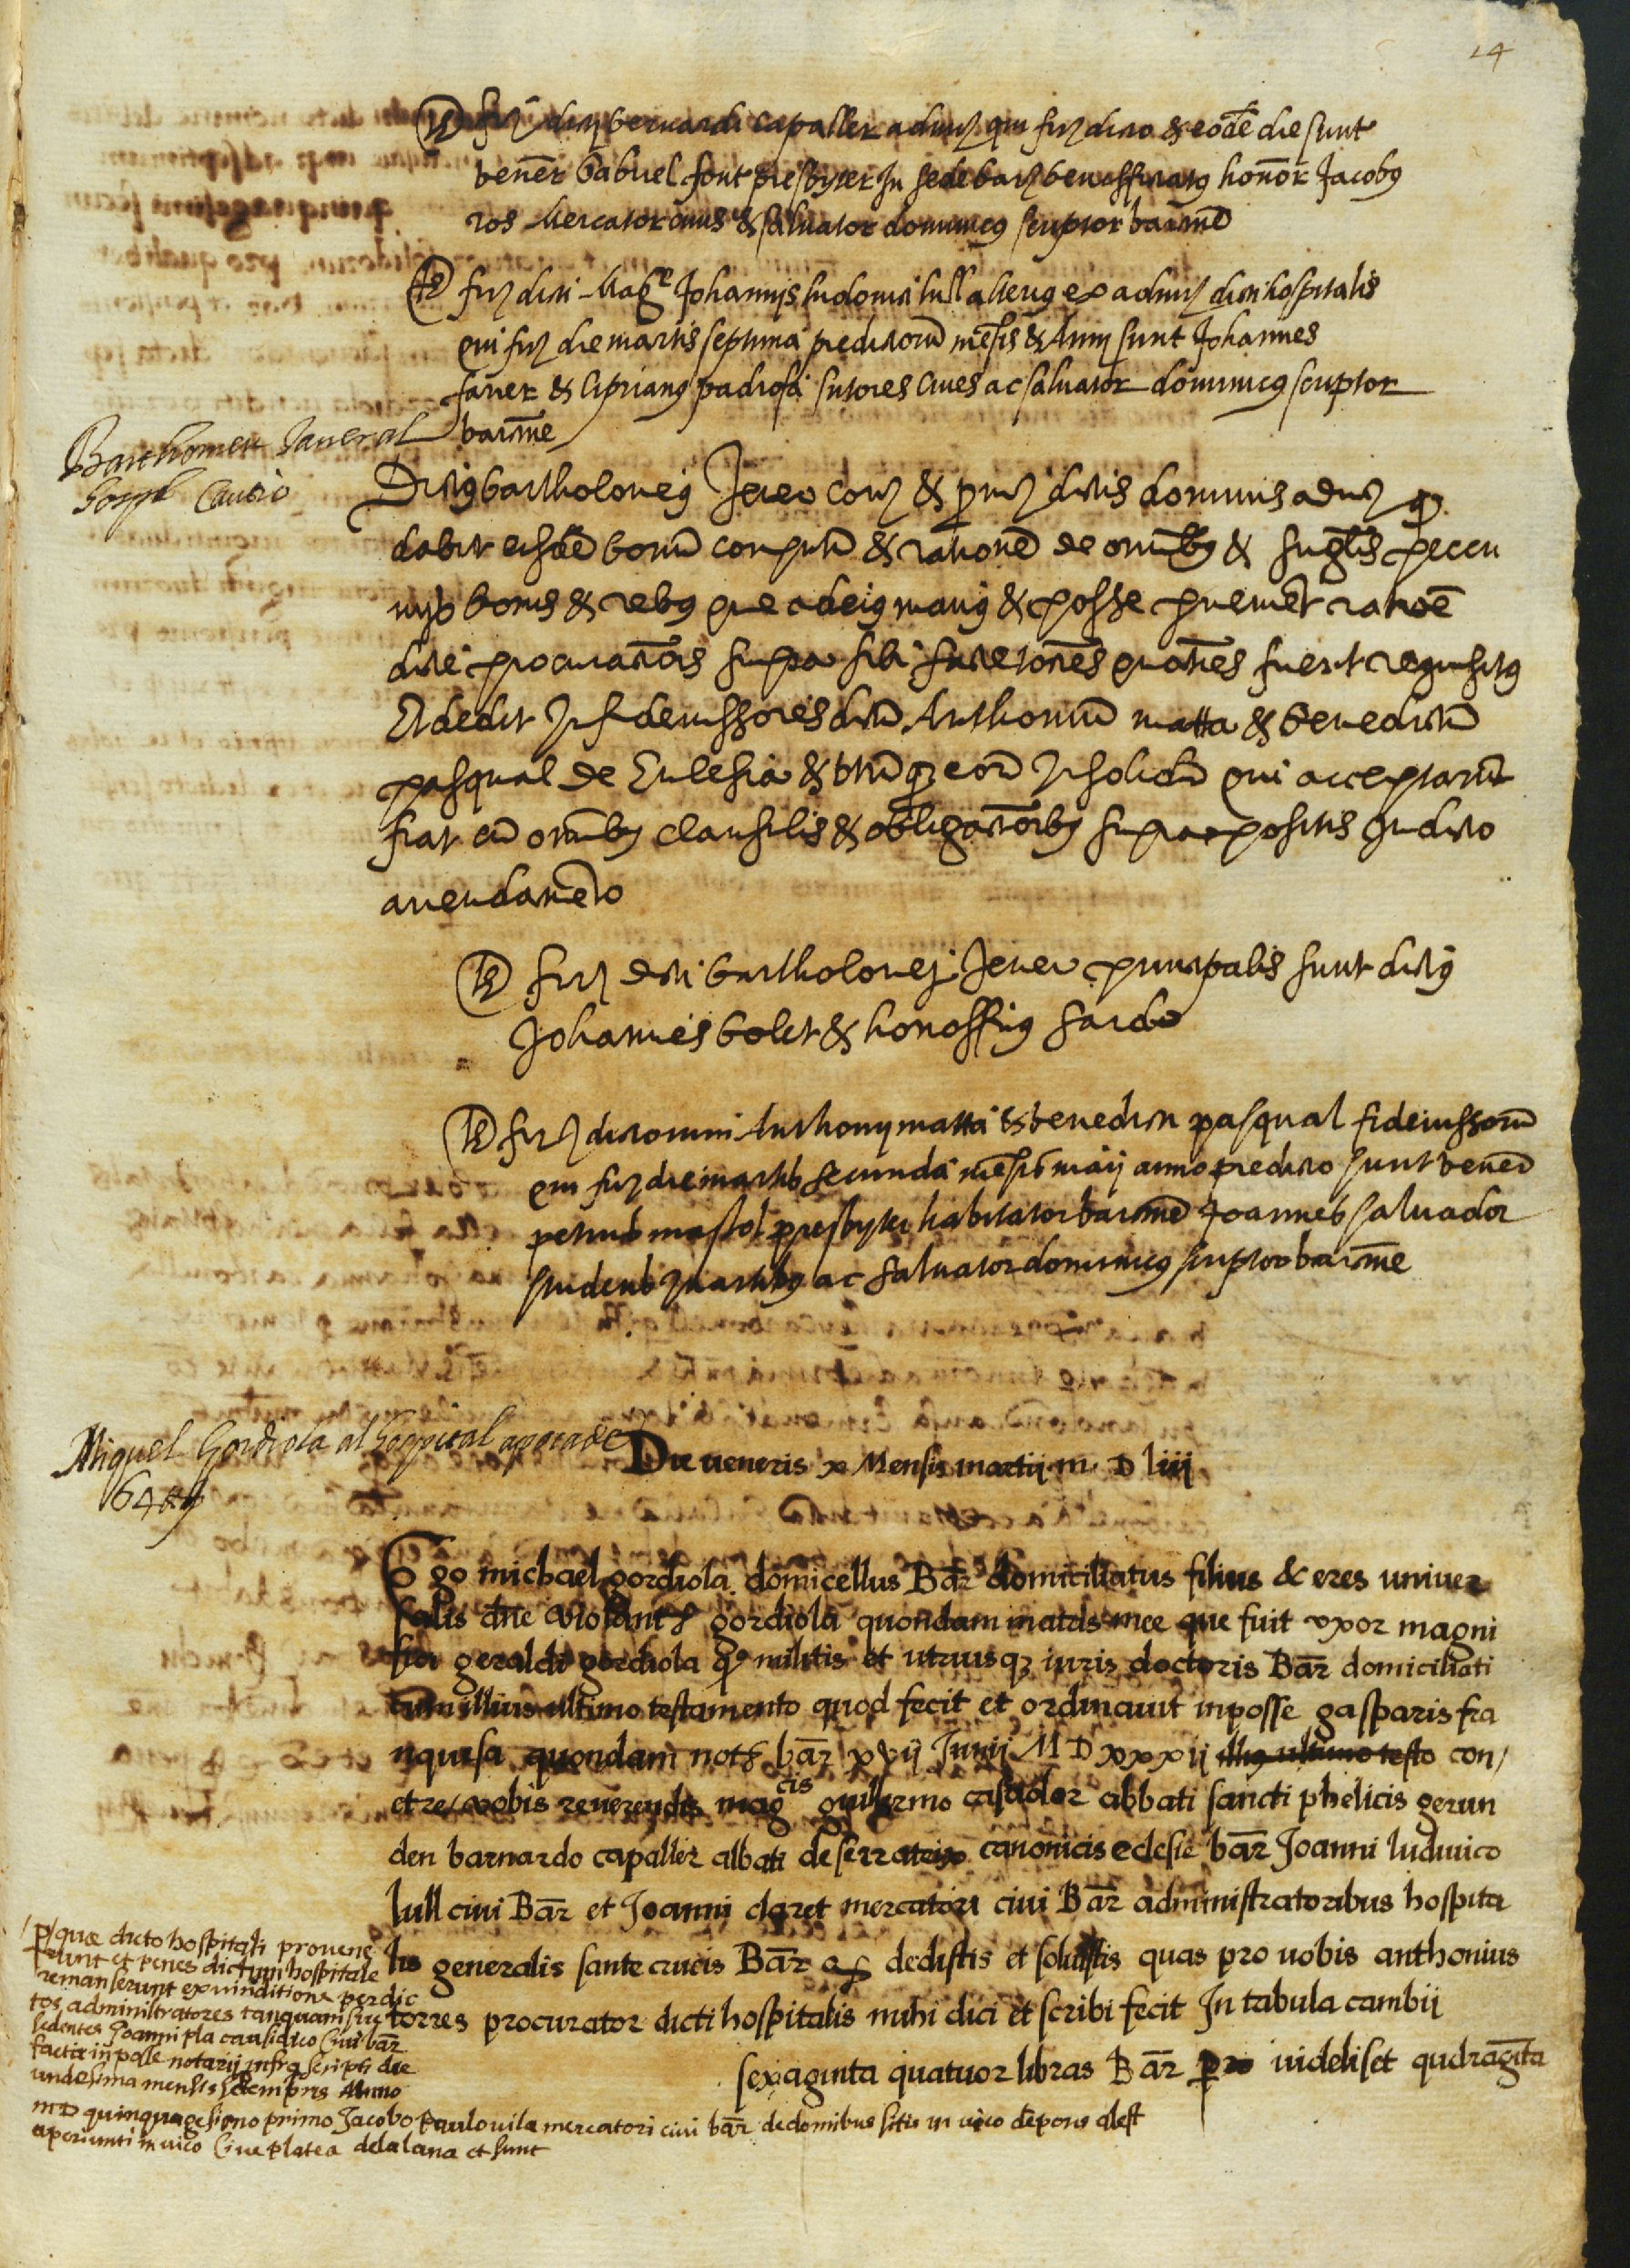 14
Ts firme dicti bernardi capaller adminis qui firmavit dicto & eodē die sunt
vener Gabriel font presbyter in sede barn beneficiatus honor Jacobus
ros Mercator civis & salvator dominicus scriptor barcīnē
Ts firme dicti Magci Johannis ludovici lull alterius ex adminis dicti hospitalis
qui firmavit die martis septima predictorū mēsis & Anni sunt Johannes
farrer & Ciprianus padrosa sutores Cives ac salvator dominicus scriptor
barcīnē
Barthomeu Janer al
Hospl Cautio
Dictus bartholomeus Jener convenit & promisit dictis dominis adminis q
dabit eisdē bonū computū & rationē de omnibus & singulis peccu
nijs bonis & rebus que ad eius manus & posse pervenerit ratiōe
dicte procurationis supra sibi facte toties quoties fuerit requisitus
Et dedit in fideiussores dictū Anthoniū matta & benedictū
pasqual de Ecclesia & utrūqz eorū insolidū qui acceptarūt
fiat cū omnibus clausulis & obligationibus supra appositis in dicto
arrendamēto
Ts firme dicti bartholomei Jener principalis sunt dictus
Johannes bolet & honoffrius sarda
Ts firme dictorum Anthonij matta & benedicti pasqual fideiussorū
qui firmavit die martis secunda mēsis maij anno predicto sunt vener
petrus mastol presbyter habitator barcīnē Joannes salvador
studens in artibus ac salvator dominicus scriptor barcīnē
Miquel Gordiola al hospital apoca de
64 ll
Die veneris x Mensis martij m D liiij
Ego michael gordiola domicellus Bar domiciliatus filius & eres univer
salis dne violantis gordiola quondam matris mee que fuit uxor magni
fici geraldi gordiola qo militis et utriusqz iuris doctoris Bar domiciliati
cum illius ultimo testamento quod fecit et ordinavit inposse gasparis fra
nquesa quondam not bar xvij Junij M D xxxij illius ultimo testo con/
et re/ vobis reverendis magcis guillermo casador abbati sancti phelicis gerun
den barnardo capaller abbati de serrateix canonicis eclesie bar Joanni luduvico
lull civi Bar et Joanni claret mercatori civi Bar administratoribus hospita
lis generalis sante crucis Bar qs dedistis et solvistis quas pro vobis anthonius
torres procurator dicti hospitalis mihi dici et scribi fecit In tabula cambij
sexaginta quatuor libras Bar pro videliset qudraginta
/ p/ quæ dicto hospitali provene
runt et penes dictum hospitale
remanserunt ex vinditione per dic
tos administratores tanquam suc
sedentes Joanni pla causidico Civi bar
facta in posse notarij infra scripti die
undesima mensis setempris Anno
MD quinquagesimo primo Jacobo Paulo vila mercatori civi bar de domibus sitis in vico de pons alest
aperienti in vico sive platea de la lana et sunt